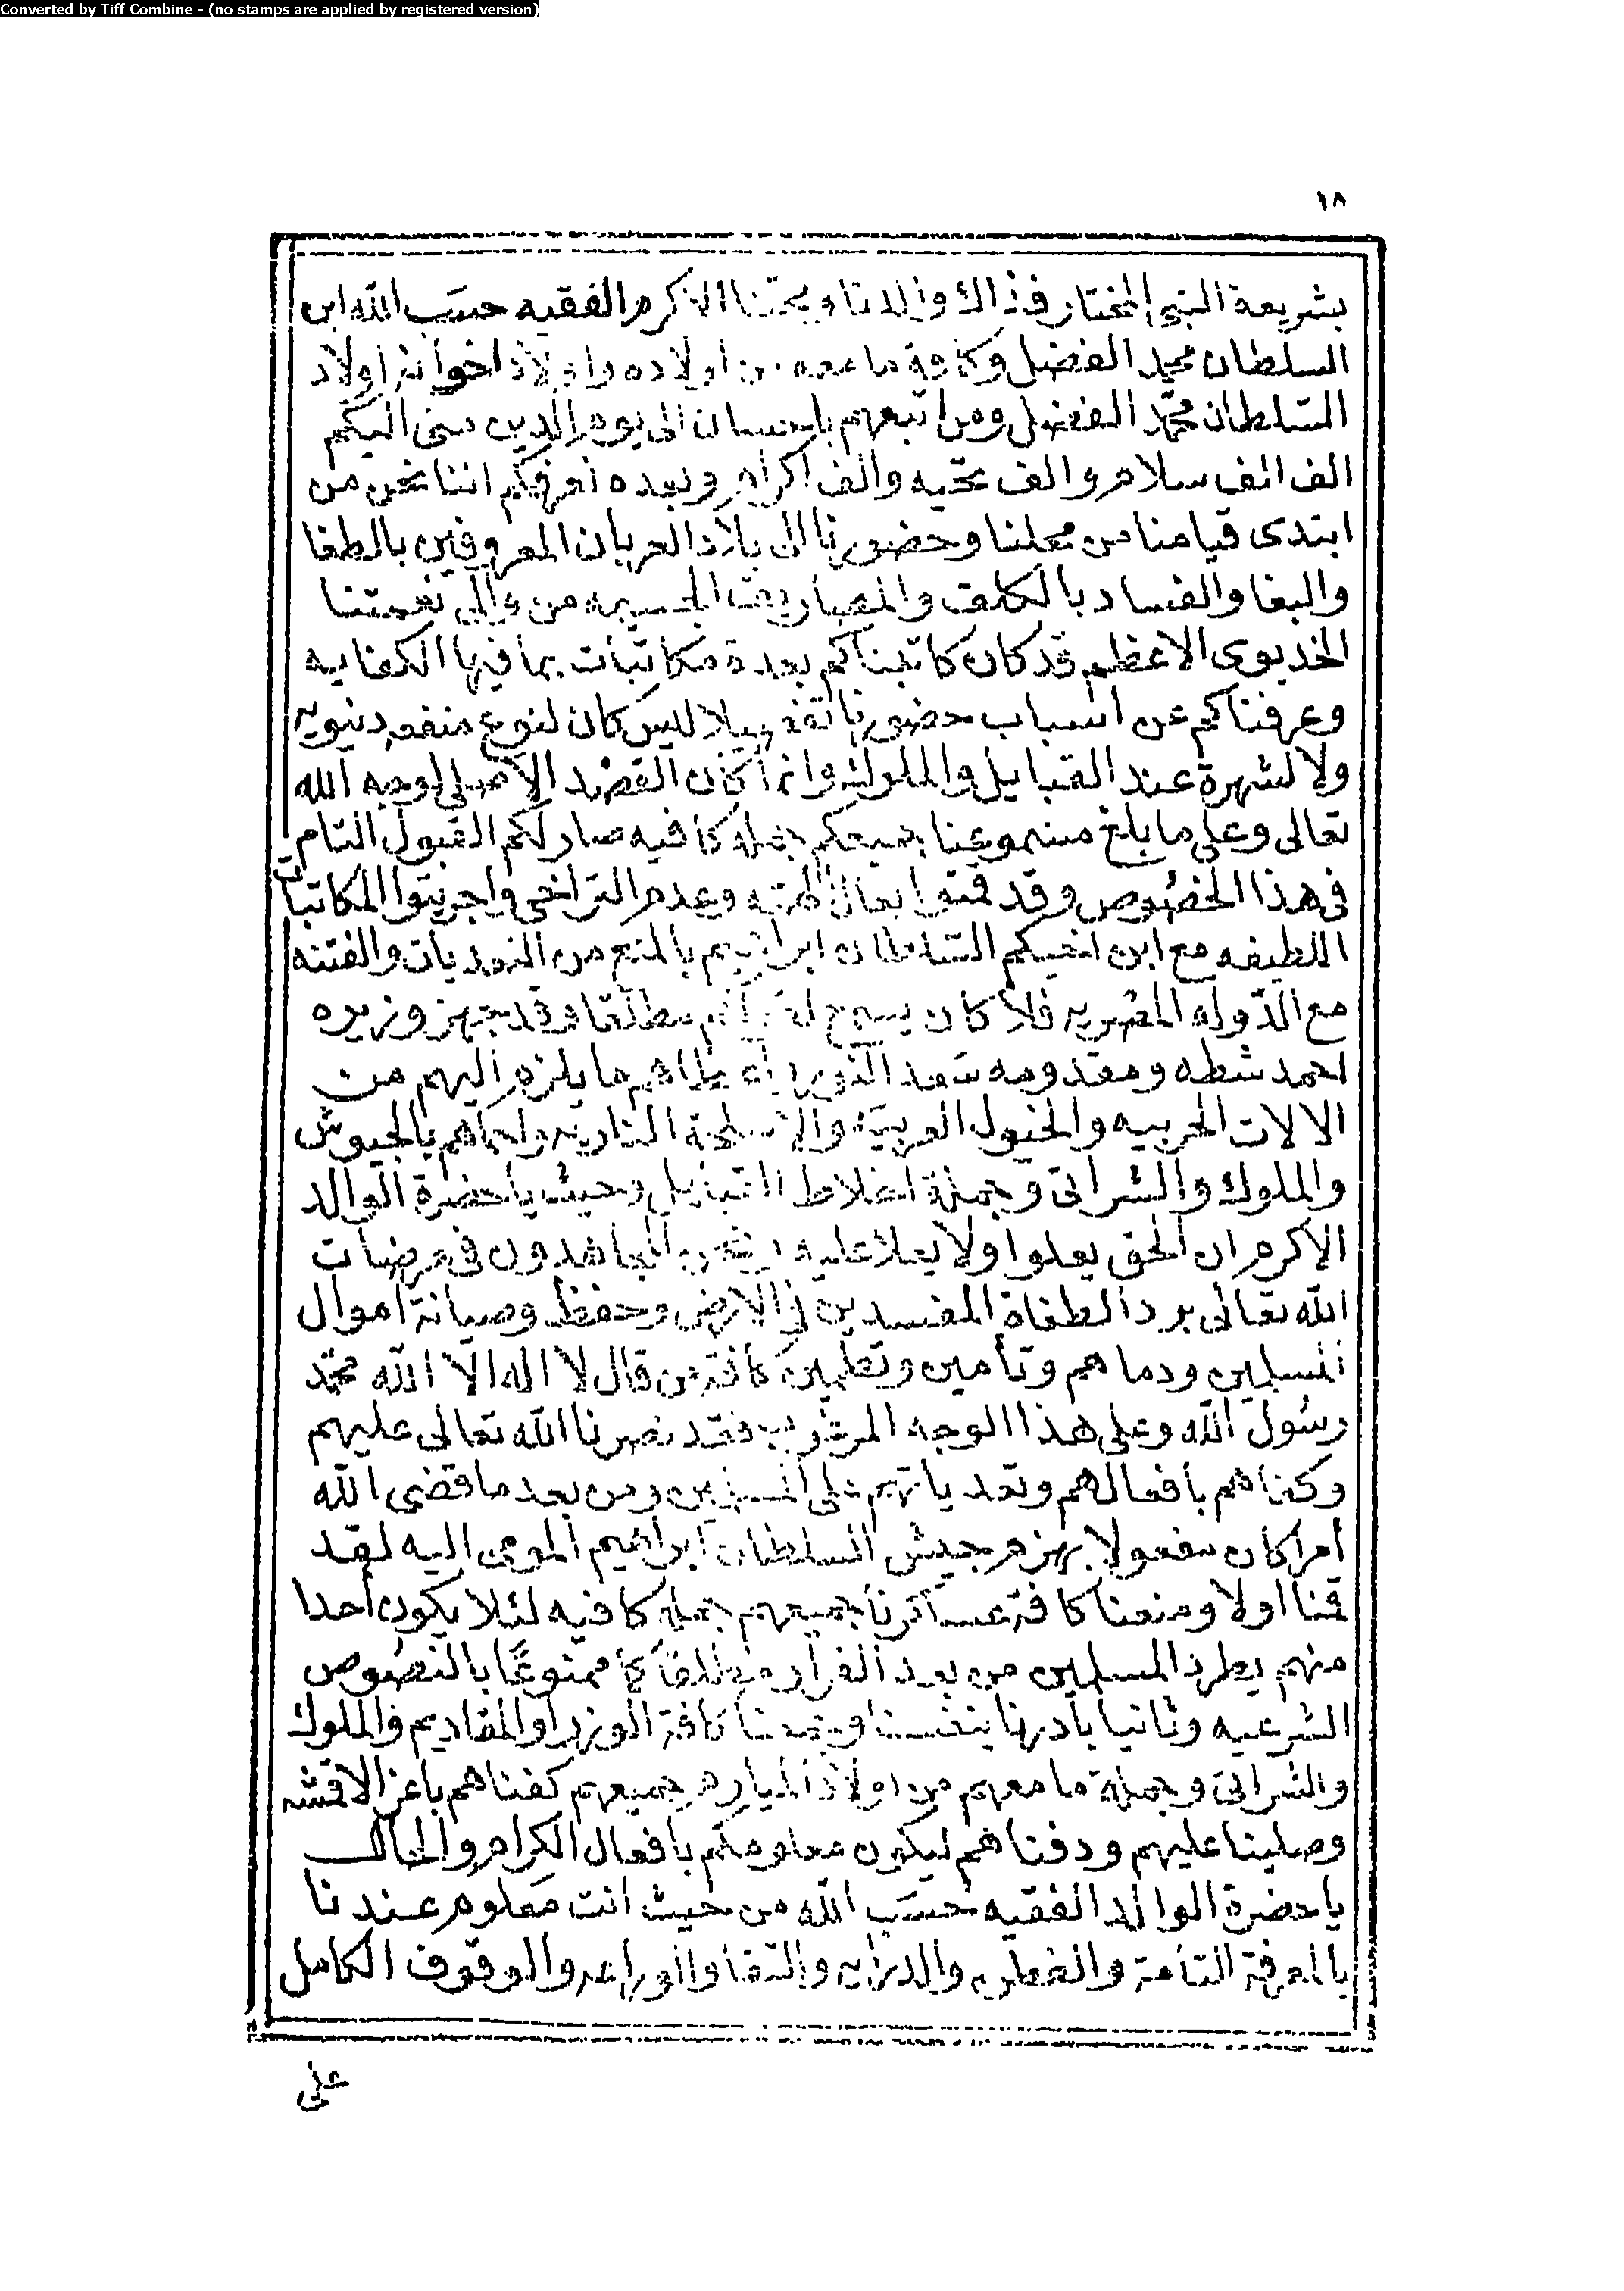 Converted by Tiff Combine - (no stamps are applied by registered version)
١٨
بشريعة النبي المختار فذاك والدنا ومحبنا الاكرم الفقيه حسَب الله ابن
السلطان محمد الفضل وكافة ما معه من اولاده واولاد اخوانه اولاد
السّلطان محمّد الفضل ومن اتبعهم باحسان الى يوم الدين منى اليكم
الف الف سلام والف تحيه والف اكرام وبعده نعرفكم اننا نحن من
ابتدى قيامنا من محلنا وحضورنا الى بلاد العربان المعروفين بالطغا
والبغا والفساد بالكلف والمصاريف الجسيمه من والى نعمتنا
الخديوى الاعظم قد كان كاتبناكم بعدة مكاتبات بما فيها الكفايه
وعرفناكم عن اسباب حضورنا تفصيلا ليس كان لنوع منفعه دنيويه
ولا لشهرة عند القبايل والملوك وانما كان القصد الاصلى لوجه الله
تعالى وعلى ما بلغ مسموعنا جميعكم بجمله كافيه صار لكم القبول التام
فى هذا الخصُوص وقد قمتوا بعالى الهمه وعدم التراخى واجريتوا المكاتبات
اللطيفه مع ابن اخيكم السّلطان ابراهيم بالمنع من التعديات والفتنه
مع الدّوله المصريه فلا كان يسمع لقولكم مطلقا وقد جهز وزيره
احمد شطه ومقدومه سَعد النور واعطاهم ما يلزم اليهم من
الالات الحربيه والخيول العربيّه والاسلحة الناريه وامدهم بالجيوش
والملوك والشراتى وجملة اخلاط القبايل وحيث ياحضرة الوالد
الاكرم ان الحق يعلوا ولا يعلا عليه ونحن المجاهدون فى مرضات
الله تعالى برد الطغاة المفسدين فى الارض وحفظ وصيانة اموال
المسلمين ودماهم وتأمين وتطمين كافة من قال لا اله الّا الله محمّد
رسُول الله وعلى هذا الوجه المرغوب فقد نصرنا الله تعالى عليهم
وكنا هم بأفعالهم وتعدياتهم على المسلمين ومن بعد ما قضى الله
امرا كان مفعولا بهزم جيش السلطان ابراهيم المومى اليه لقد
قمنا اولا ومنعنا كافة عساكرنا جميعهم بجمله كافيه لئلا يكون أحدا
منهم يطرد المسلمين من بعد الفرار مطلقا كما ممنوعًا بالنصُوص
الشرعيه وثانيا بادرنا بنفسنا وجمعنا كافة الوزرا والمقاديم والملوك
والشراتى وجملة ما معهم من اولاد الديار جميعهم كفناهم باعز الاقمشه
وصلينا عليهم ودفناهم ليكون معلومكم بافعال الكرام والحال
ياحضرة الوالد الفقيه حسَب الله من حيث انت معلوم عندنا
بالمعرفة التامة والفطريه والدرايه والتقا والوراعه والوقوف الكامل
على